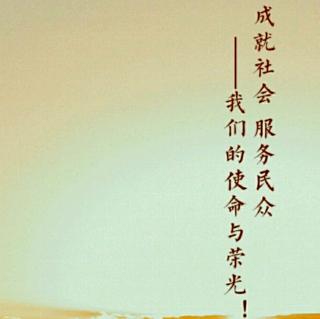 成就社会 服务民众
——我们的使命与荣光！